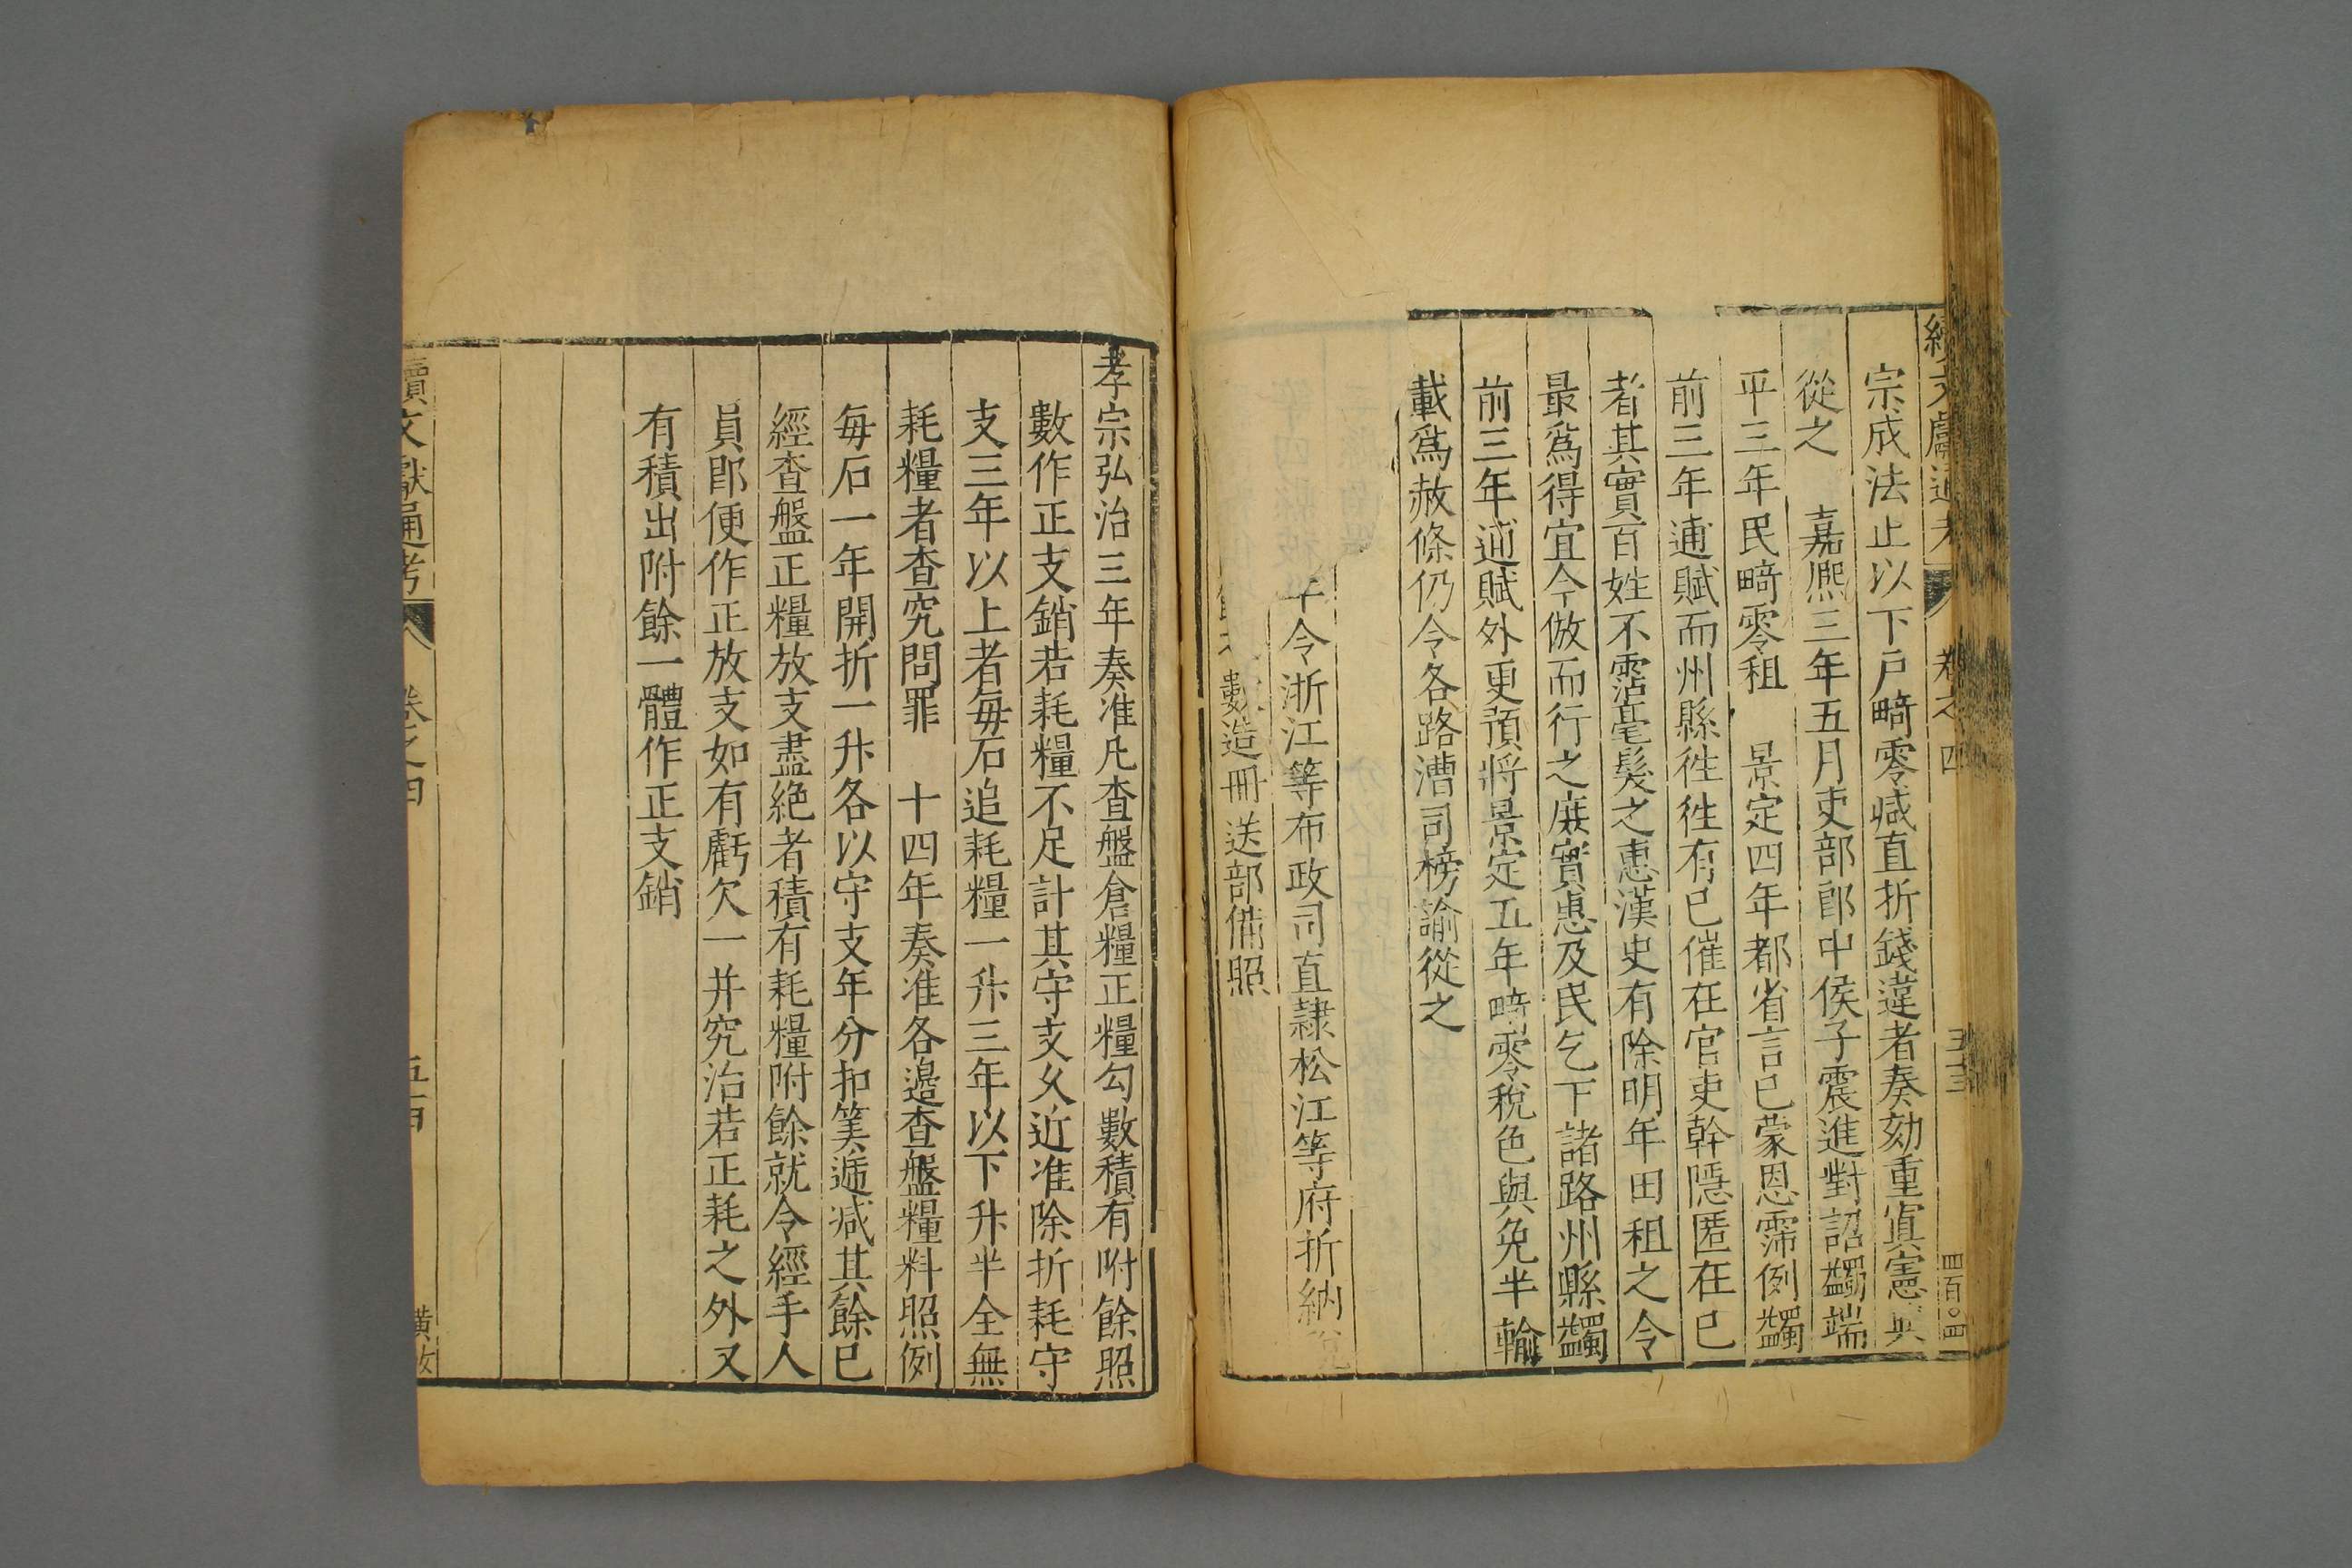 宗成法止以下戶畸零减直折錢違者奏劾重寘憲典
從之　嘉熈三年五月吏部郎中侯子震進對詔蠲端
平三年民畸零租　景定四年都省言已蒙恩霈例蠲
前三年逋賦而州縣徃徃有已催在官吏幹隱匿在已
者其實百姓不霑毫髮之惠漢史有除明年田租之令
最爲得宜今倣而行之庶實惠及民乞下諸路州縣蠲
前三年逋賦外更預將景定五年畸零稅色與免半輸
載爲赦條仍令各路漕司榜諭從之
令浙江等布政司直隷松江等府折納
數造冊送部備照
孝宗弘治三年奏准凡查盤倉糧正糧勾數積有附餘照
數作正支銷若耗糧不足計其守支久近准除折耗守
支三年以上者每石追耗糧一升三年以下升半全無
耗糧者查究問罪　十四年奏准各邊查盤糧料照例
每石一年開折一升各以守支年分扣筭遞减其餘已
經查盤正糧放支盡絶者積有耗糧附餘就令經手人
員即便作正放支如有虧欠一并究治若正耗之外又
有積出附餘一體作正支銷
續文獻通考　卷之四